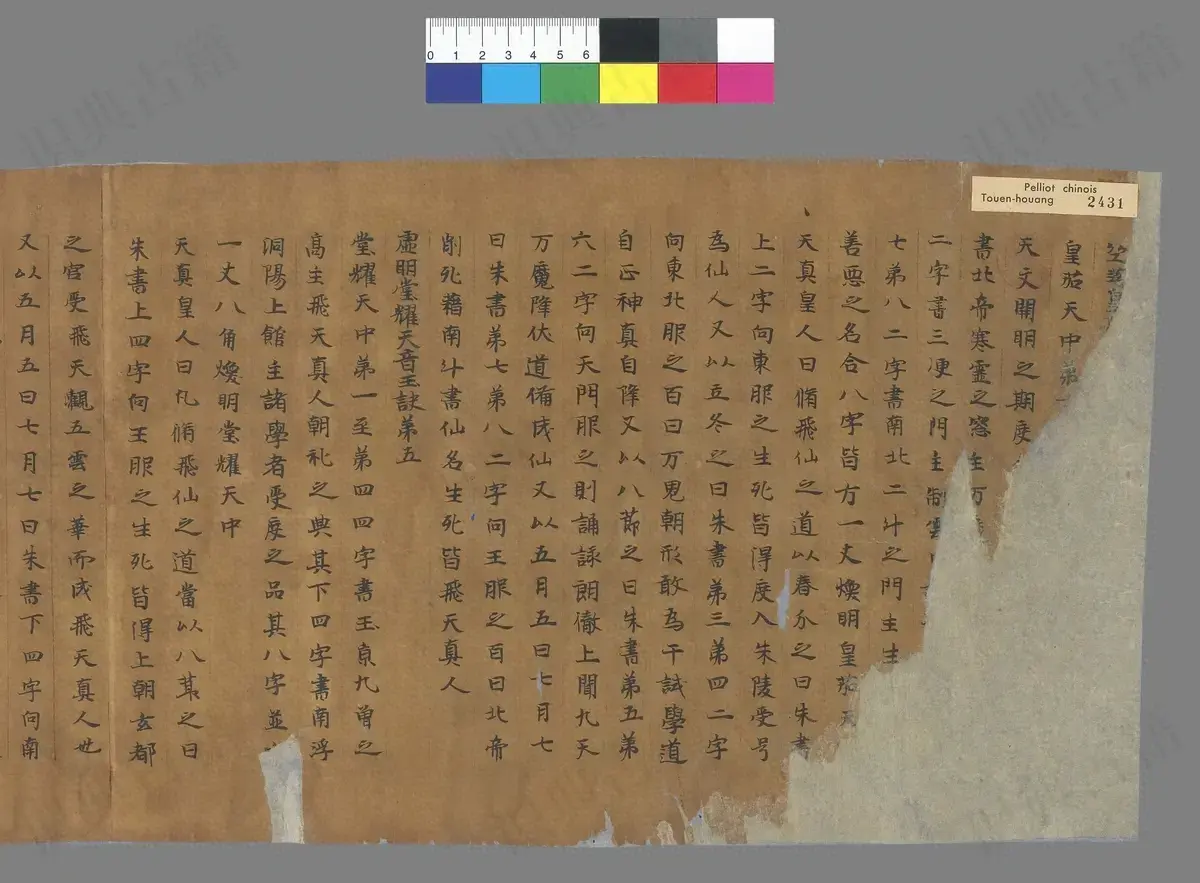 Pelliot chinois
Touen-houang 2431
0 1 2 3 4 5 6
皇笳天中
天文開明之期度
書北帝寒靈之窓主万
二字書三便之門主制雲
七第八二字書南北二斗之門主生
善惡之名合八字皆方一丈煥明皇笳天
天真皇人曰脩飛仙之道以春分之日朱書
上二字向東服之生死皆得度入朱陵受号
為仙人又以立冬之日朱書第三第四二字
向東北服之百日万鬼朝形敢為干試學道
自正神真自降又以八節之日朱書第五第
六二字向天門服之則誦詠朗徹上聞九天
万魔降伏道備成仙又以五月五日七月七
日朱書第七第八二字向王服之百日北帝
削死籍南斗書仙名生死皆飛天真人
虛明堂耀天音玉訣第五
堂耀天中第一至第四四字書玉京九曾之
高主飛天真人朝礼之典其下四字書南浮
洞陽上館主諸學者受度之品其八字並
一丈八角煥明堂耀天中
天真皇人曰凡脩飛仙之道當以八萁之日
朱書上四字向王服之生死皆得上朝玄都
之宮受飛天飄五雲之華而成飛天真人也
又以五月五日七月七日朱書下四字向南